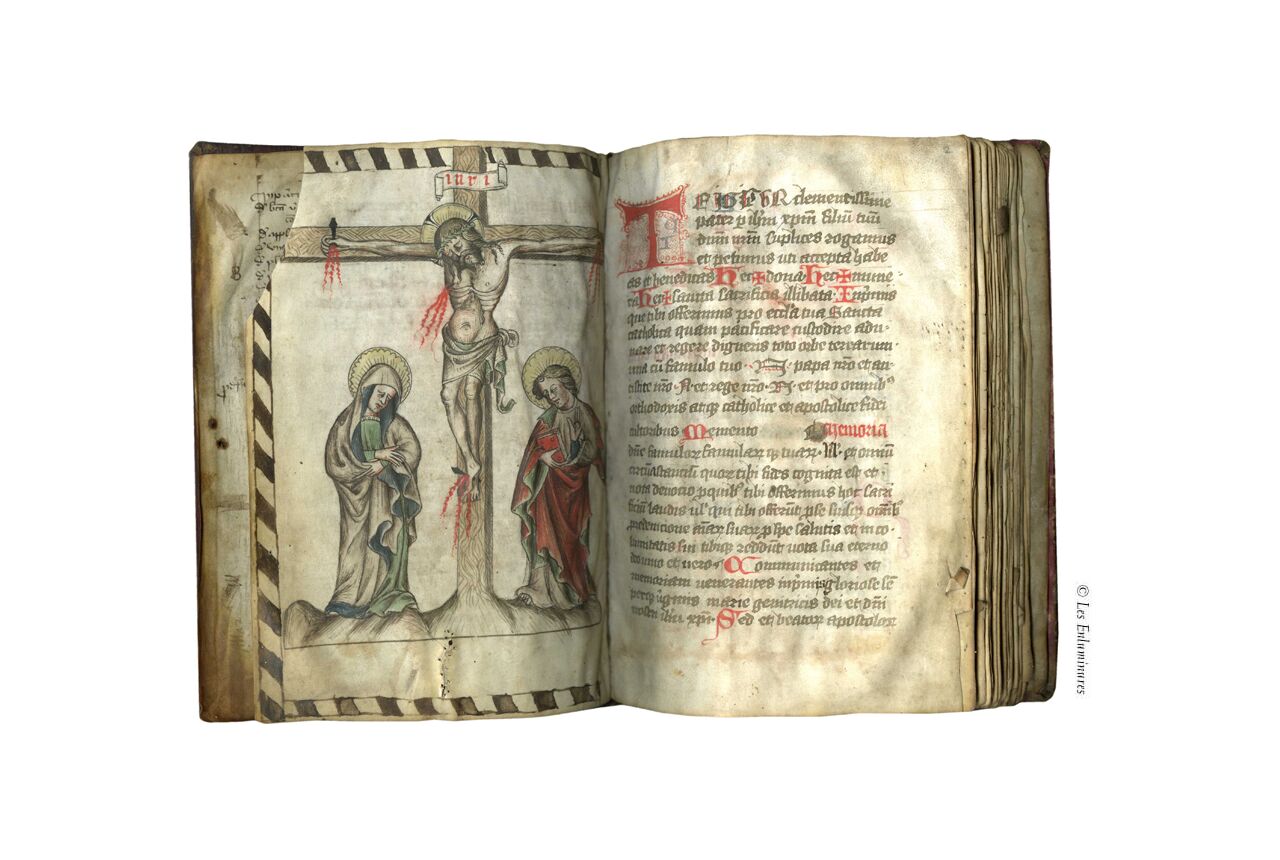 inri
TE IGITUR clementissime
pater p ihm xpm filiu tuu
dnm nrm Supplices rogamus
et petimus uti accepta habe
as et benedicas hec ✠ dona hec ✠ mune
ra hec ✠ sancta sacrificia illibata Inprimis
que tibi offerimus pro ecclia tua Sancta
catholica quam pacificare custodire adu
nare et regere digneris toto orbe terrarum
una cu famulo tuo papa nro et an
tistite nro N et rege nro N et pro omnib
orthodoxis atq catholice et apostolice fidei
cultoribus Memento Memoria
dne famulor famular q tuar N et omniu
circustanciu quor tibi fides cognita est et
nota devocio p quib tibi offerimus hoc sacri
ficiu laudis ul qui tibi offerut p se suisq omib
p redempcione aiar suar p spe salutis et in co
lumitatis sui tibiq reddut vota sua eterno
deo vivo et vero Communicantes et
memoriam venerantes inprimis gloriose
virginis marie genitricis dei et dni
nostri ihu xpi Sed et beator apostolor
© Les Enluminures